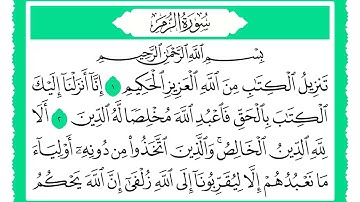 سُورَةُ الزُّمَرِ
بِسْمِ اللَّهِ الرَّحْمَٰنِ الرَّحِيمِ
تَنزِيلُ الْكِتَابِ مِنَ اللَّهِ الْعَزِيزِ الْحَكِيمِ ١ إِنَّا أَنزَلْنَا إِلَيْكَ
الْكِتَابَ بِالْحَقِّ فَاعْبُدِ اللَّهَ مُخْلِصًا لَّهُ الدِّينَ ٢ أَلَا
لِلَّهِ الدِّينُ الْخَالِصُ وَالَّذِينَ اتَّخَذُوا مِن دُونِهِ أَوْلِيَاءَ
مَا نَعْبُدُهُمْ إِلَّا لِيُقَرِّبُونَا إِلَى اللَّهِ زُلْفَىٰ إِنَّ اللَّهَ يَحْكُمُ